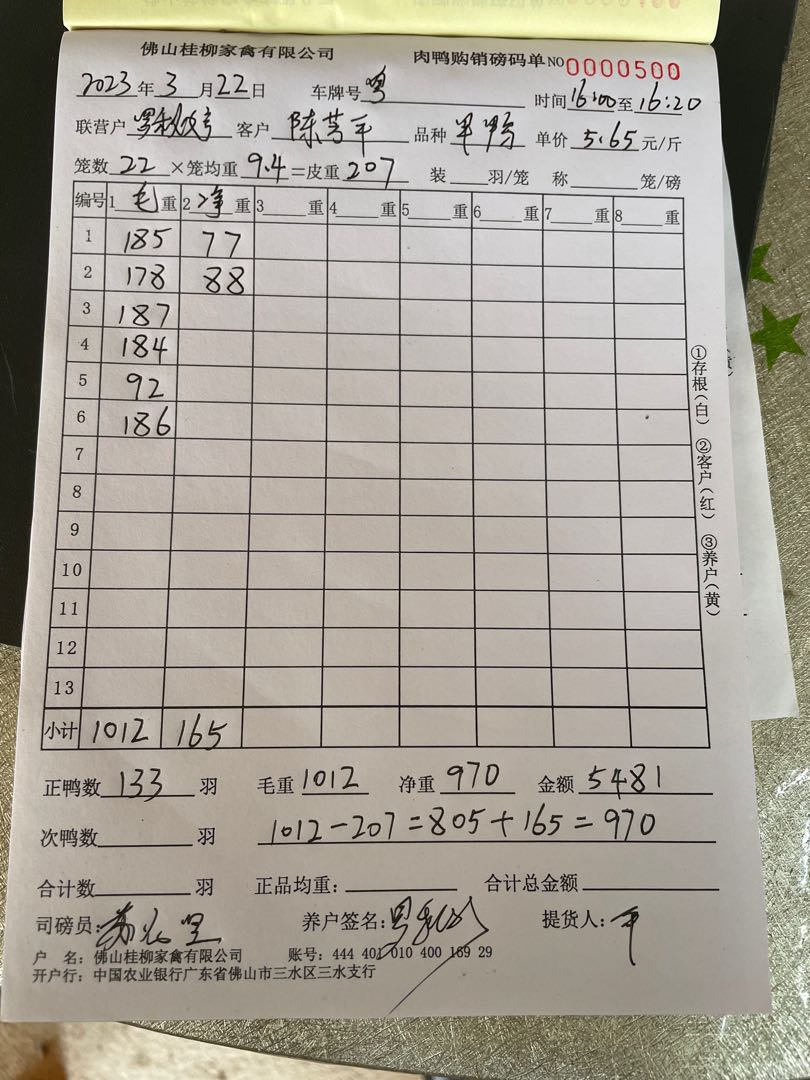 佛山桂柳家禽有限公司 肉鸭购销磅码单 NO 0000500
2023年3月22日 车牌号 粤 时间16:00至16:20
联营户 客户 陈芳平 品种 单价 5.65 元/斤
笼数 22 ×笼均重 9.4 =皮重 207 装 羽/笼 称 笼/磅
编号 1 毛 重 2 净 重 3 重 4 重 5 重 6 重 7 重 8 重
1 185 77
2 178 88
3 187
4 184
5 92
6 186
7
8
9
10
11
12
13
小计 1012 165
①存根(白) ②客户(红) ③养户(黄)
正鸭数 133 羽 毛重 1012 净重 970 金额 5481
次鸭数 羽 1012-207=805+165=970
合计数 羽 正品均重: 合计总金额
司磅员: 养户签名: 提货人: 平
户 名: 佛山桂柳家禽有限公司 账号: 444 401 010 400 169 29
开户行: 中国农业银行广东省佛山市三水区三水支行